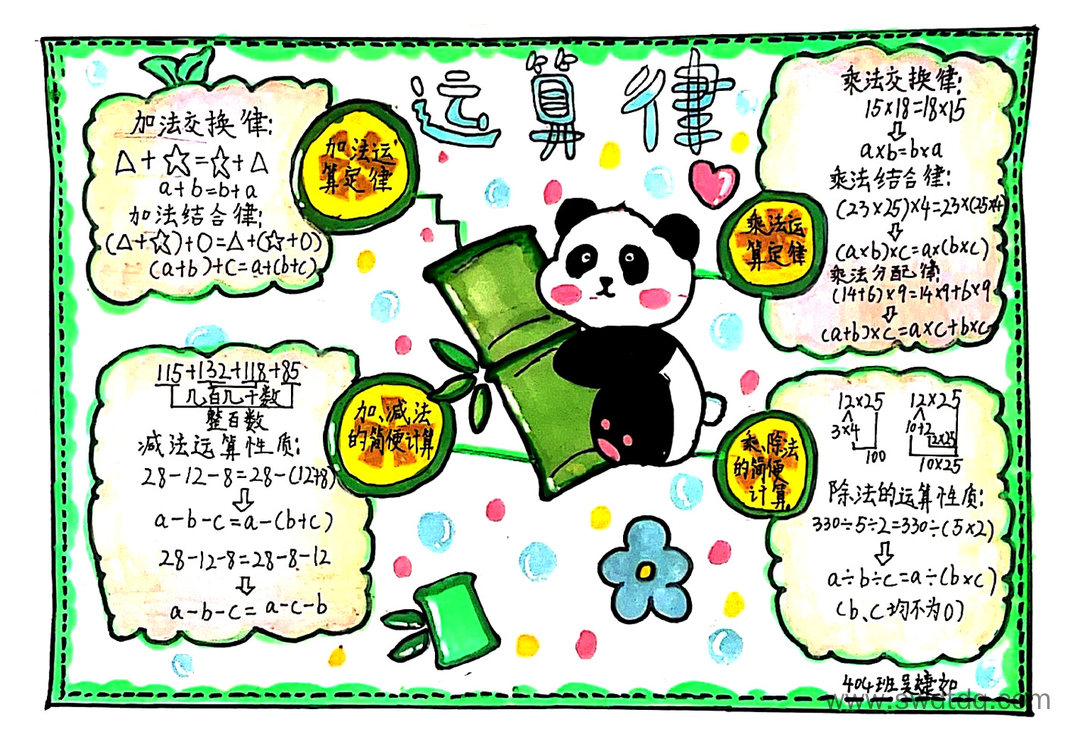 运算律
加法运
算定律
加法交换律:
△+☆=☆+△
a+b=b+a
加法结合律:
(△+☆)+○=△+(☆+○)
(a+b)+c=a+(b+c)
乘法运
算定律
乘法交换律:
15×18=18×15
a×b=b×a
乘法结合律:
(23×25)×4=23×(25×4
(a×b)×c=a×(b×c)
乘法分配律:
(14+6)×9=14×9+6×9
(a+b)×c=a×c+b×c
加、减法
的简便计算
115+132+118+85
几百几十数
整百数
减法运算性质:
28-12-8=28-(12+8)
a-b-c=a-(b+c)
28-12-8=28-8-12
a-b-c=a-c-b
乘、除法
的简便
计算
12×25 12×25
3×4 10+2
2×25
100 10×25
除法的运算性质:
330÷5÷2=330÷(5×2)
a÷b÷c=a÷(b×c)
(b、c均不为0)
404班吴婕
www.swdtdq.com